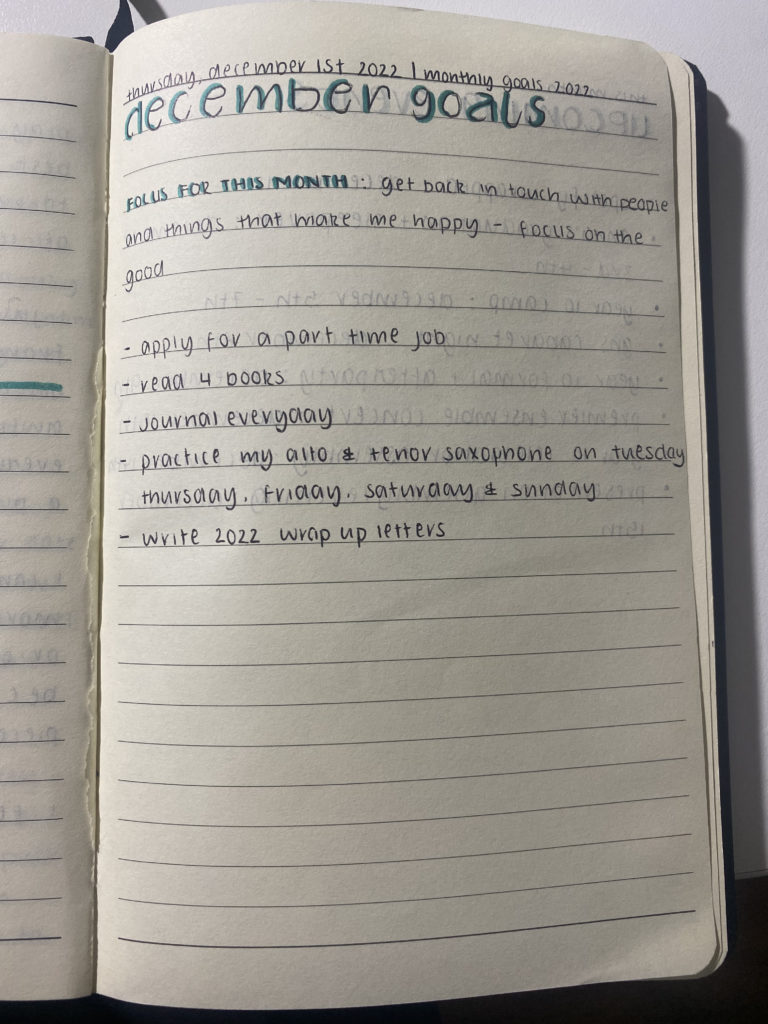 thursday, december 1st 2022 | monthly goals 2022
december goals
FOCUS FOR THIS MONTH : get back in touch with people
and things that make me happy - focus on the
good
- apply for a part time job
- read 4 books
- journal everyday
- practice my alto & tenor saxophone on tuesday
thursday, friday, saturday & sunday
- write 2022 wrap up letters